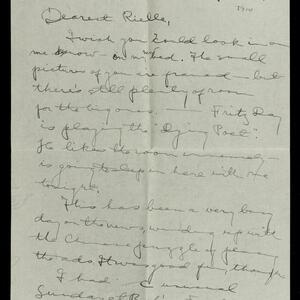 1910
Dearest Rielle,
I wish you could look in on
me now - on my bed. The small
pictures of you are framed - but
there's still plenty of room
for the big ones. - Fritz Day
is playing the "Dying Poet".
He likes the room immensely -
is going to sleep in here with me
tonight.
This has been a very busy
day on the news, winding up with
the Chinese juggle of penny
the ads. It was good fun, though.
I had unusual
Sunday